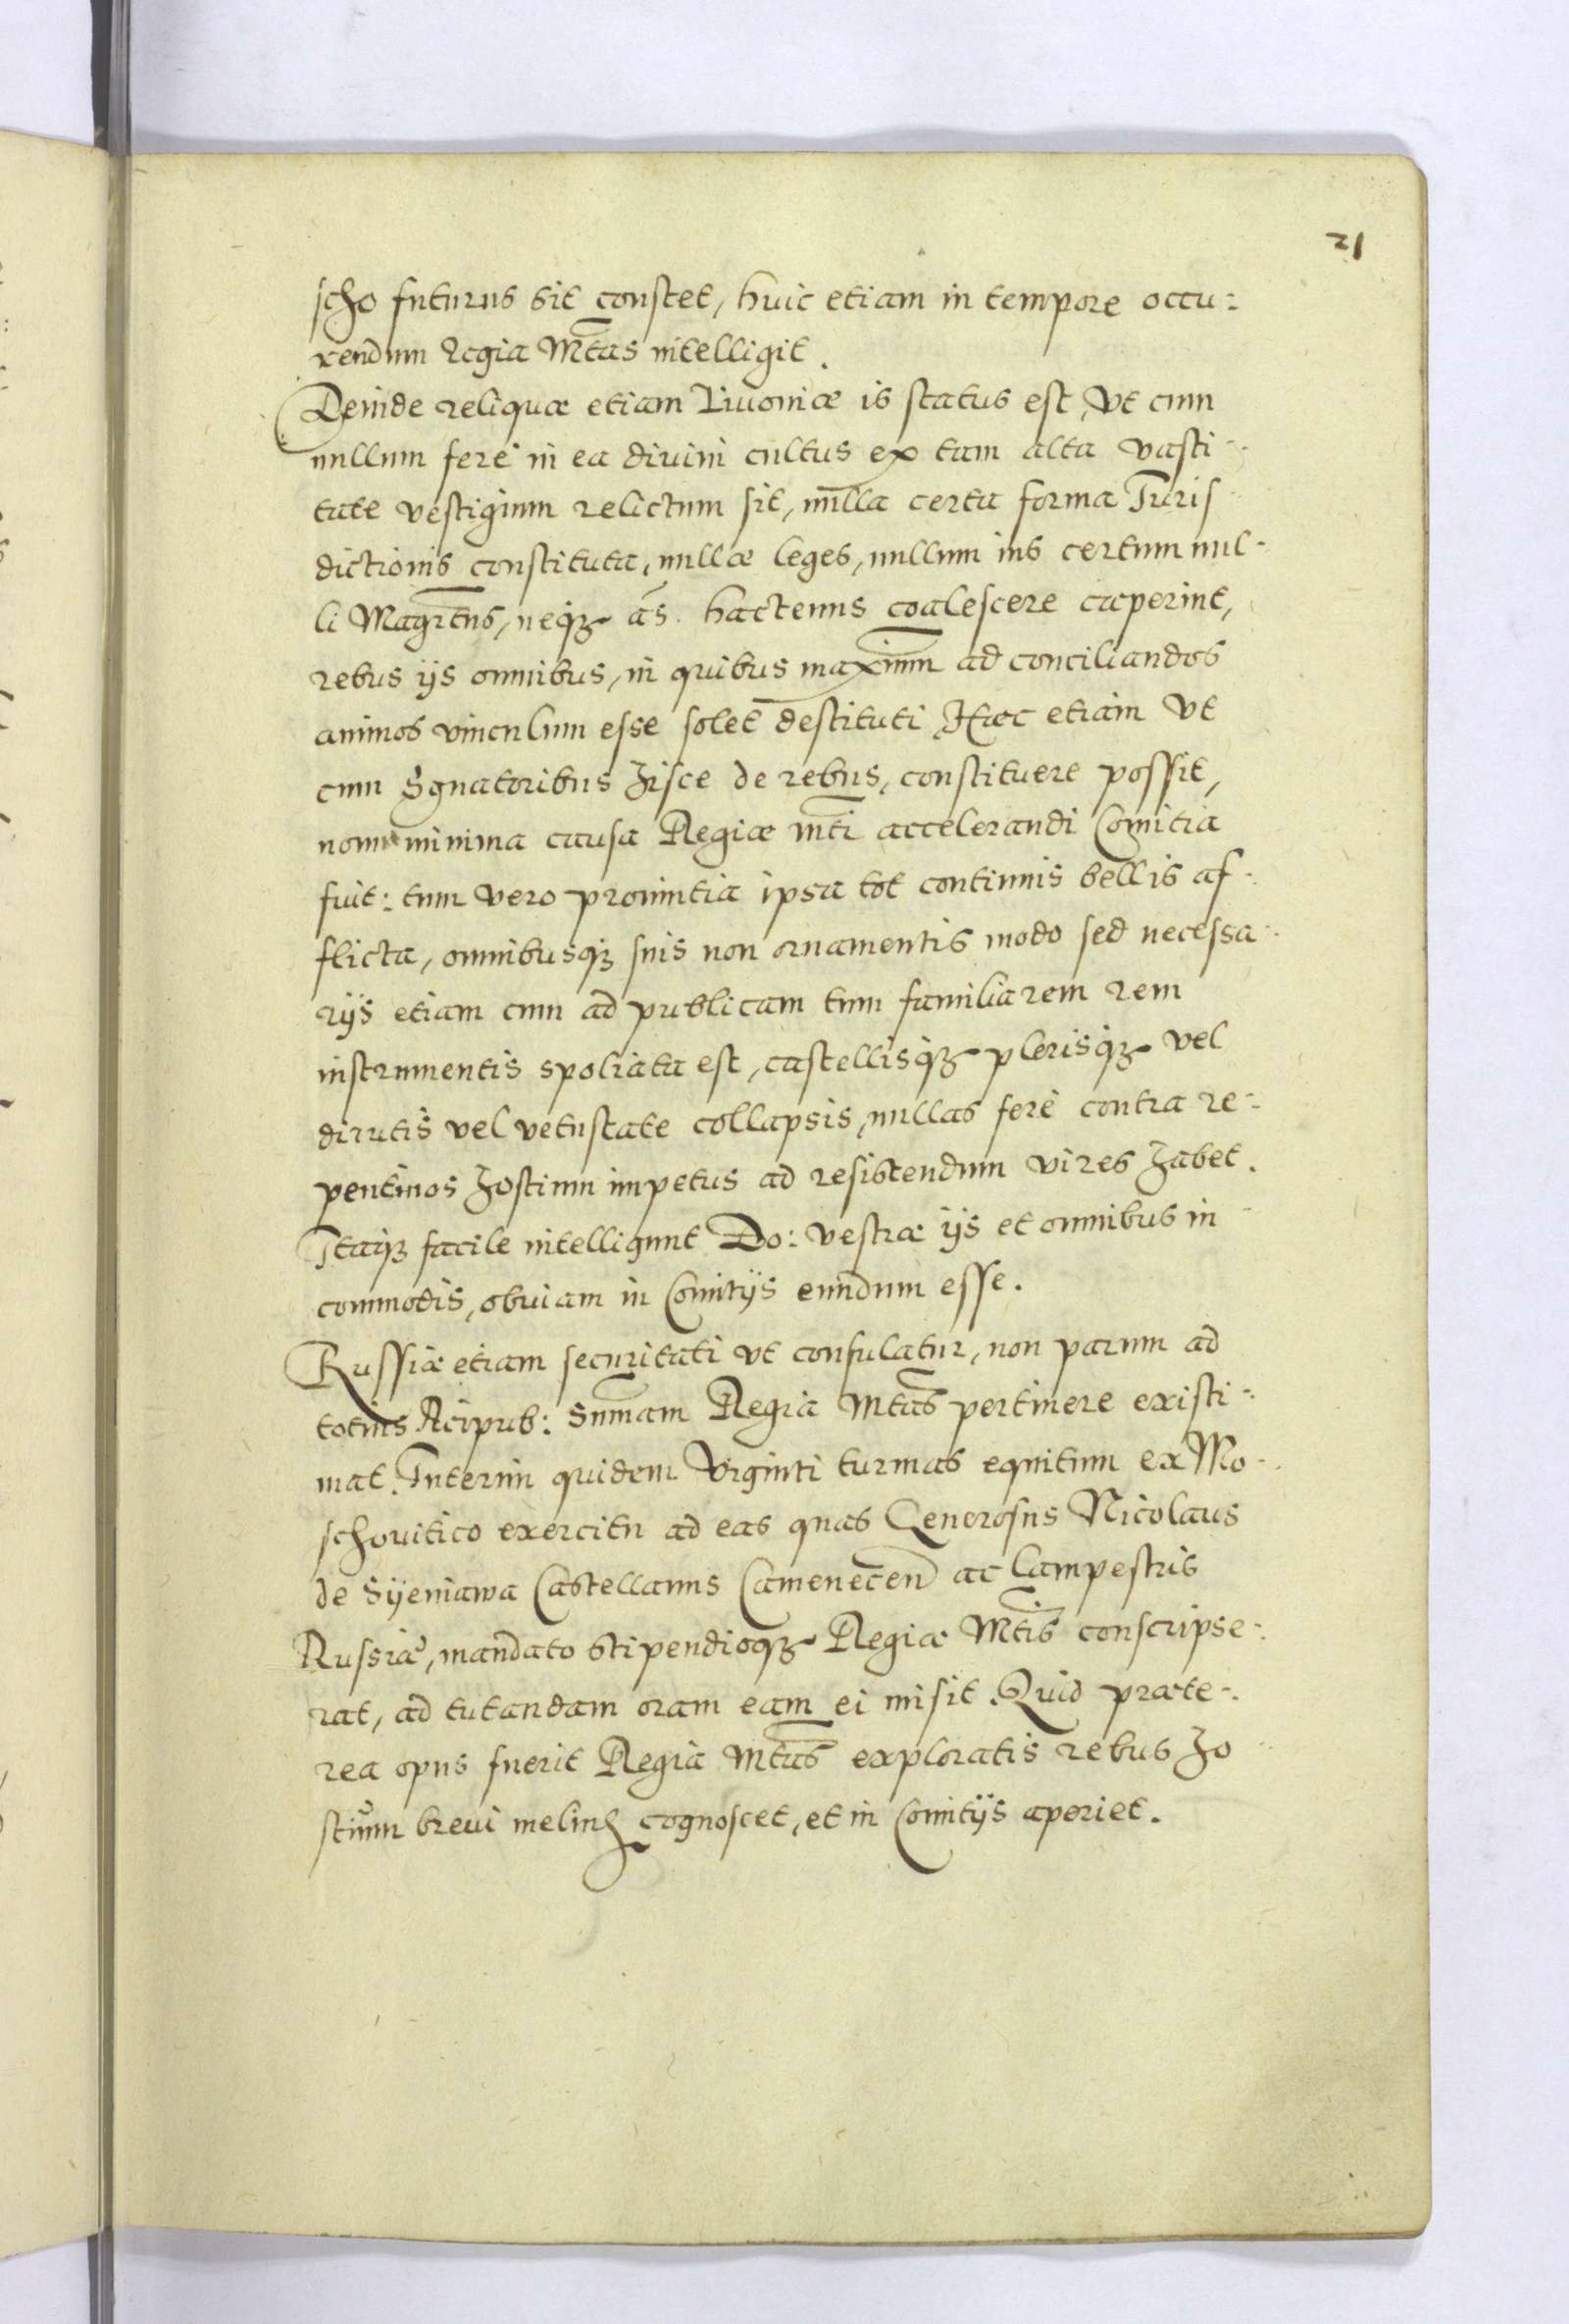 21
scho futurus sit constet, huic etiam in tempore occu:
rendum Regia Mtas intelligit.
Deinde reliquæ etiam Livoniæ is status est, Vt cum
nullum ferè in ea divini cultus ex tam alta vasti-
tate vestigium relictum sit, nulla certa forma Iuris
dictionis constituta, nullæ leges, nullum ius certum nul-
li Magrtus, neqz hactenus coalescere cæperint,
rebus ijs omnibus, in quibus maximum ad conciliandos
animos vinculum esse solet destituti, Hæc etiam Vt
cum Senatoribus hisce de rebus, constituere possit,
non minima causa Regiæ Mti accelerandi Comitia
fuit: tum vero provintia ipsa tot continuis bellis af-
flicta, omnibusqz suis non ornamentis modo sed necessa-
rijs etiam cum ad publicam tum familiarem rem
instrumentis spoliata est, castellisqz plerisqz vel
dirutis vel vetustate collapsis, nullas ferè contra re-
pentinos hostium impetus ad resistendum vires habet.
Itaqz facile intelligunt Do: vestræ ijs et omnibus in
commodis, obviam in Comitijs eundum esse.
Russiæ etiam securitati vt consulatur, non parum ad
totius Reipub: Summam Regia Mtas pertinere existi-
mat. Interim quidem Viginti turmas equitum ex Mo-
schovitico exercitu ad eas quas Generosus Nicolaus
de Syeniawa Castellanus Camenecen ac Campestris
Russiæ, mandato stipendioqz Regiæ Mtis conscripse-
rat, ad tutandam oram eam ei misit. Quid præte-
rea opus fuerit Regia Mtas exploratis rebus ho
stium brevi melius cognoscet, et in Comitijs aperiet.